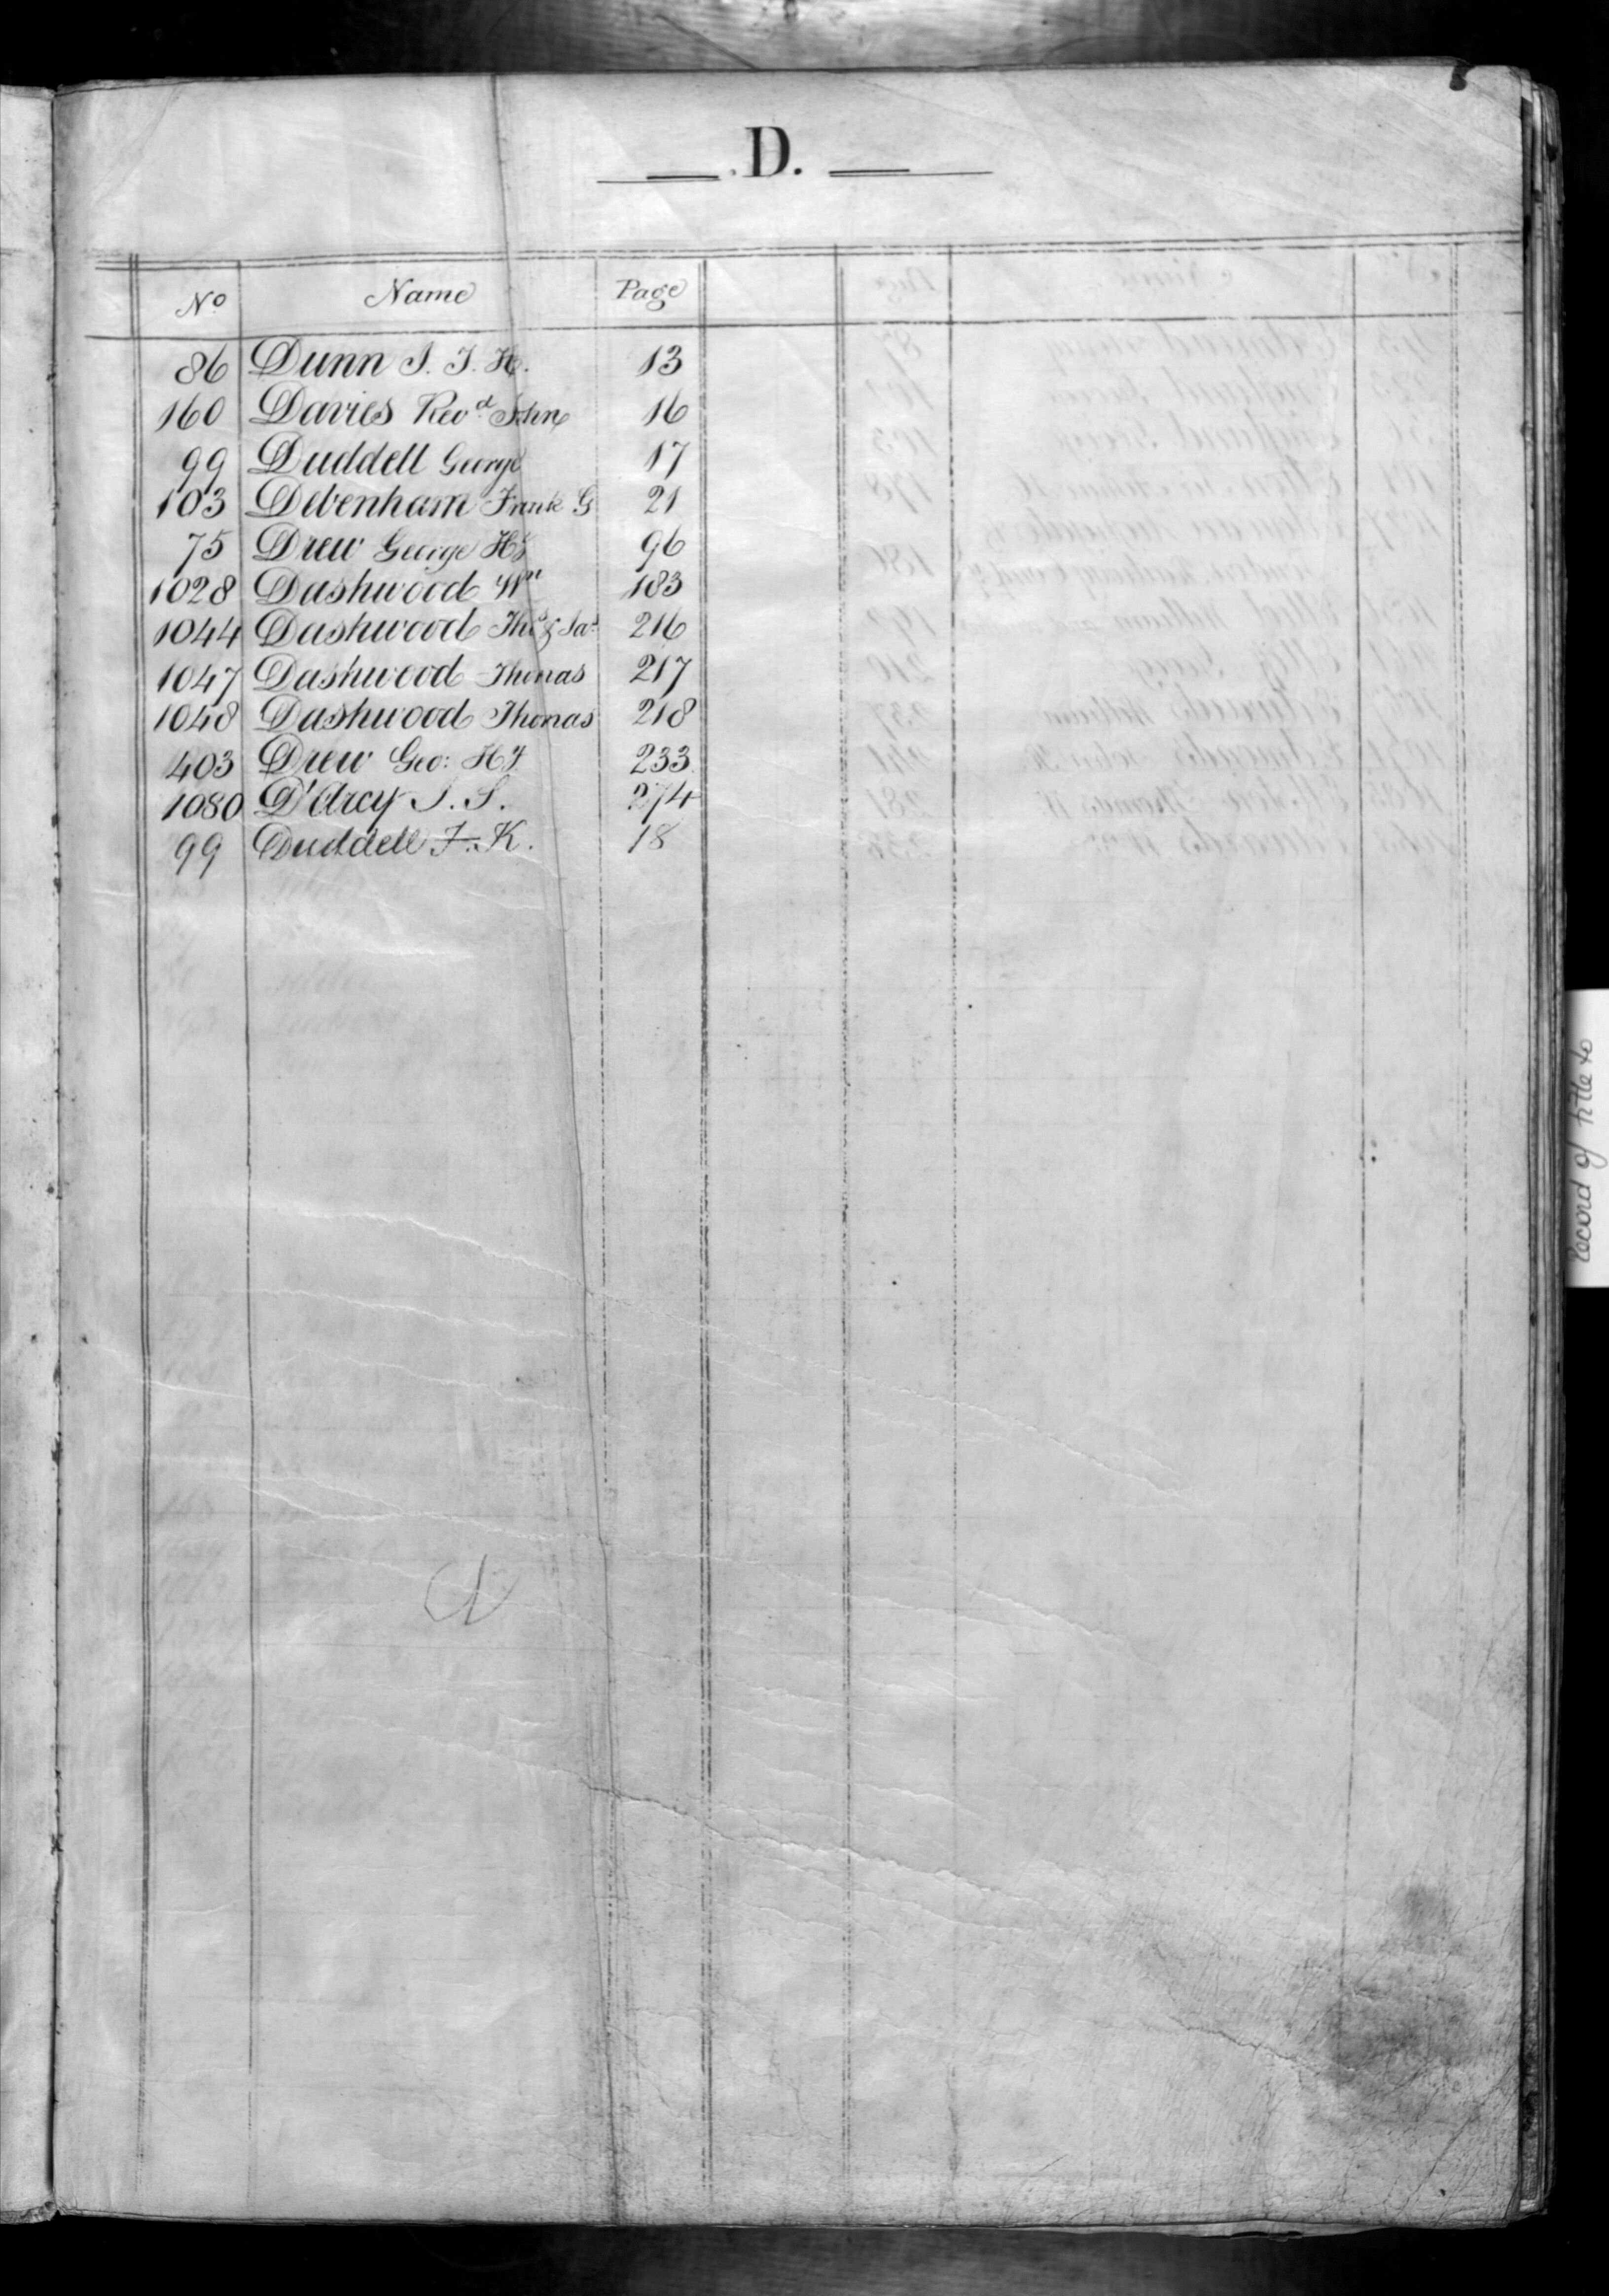 D.
No Name Page
86 Dunn J. J. H. 13
160 Davies Revd John 16
99 Duddell George 17
103 Debenham Frank G 21
75 Drew George Hy 96
1028 Dashwood Wm 183
1044 Dashwood Thos & Jas 216
1047 Dashwood Thomas 217
1048 Dashwood Thomas 218
403 Drew Geo: Hy 233
1080 D'Arcy J. S. 274
99 Duddell F. K. 18
Record of title to